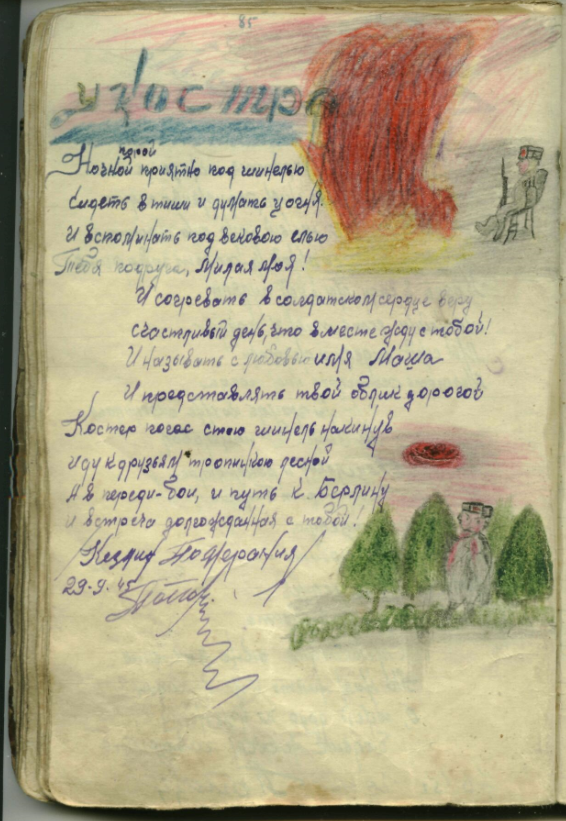 85
у костра
порой
Ночной приятно под шинелью
Сидеть в тиши и думать у огня.
И вспоминать под вековою елью
Тебя подруга, Милая моя!
И согревать в солдатском сердце веру
Счастливый день, что вместе жду с тобой!
И называть с любовью имя Маша
И представлять твой облик дорогой
Костер погас стою шинель накинув
иду к друзьям тропинкою лесной
А в переди-бои, и путь к Берлину
и встреча долгожданная с тобой!
Померания
29-9. 45